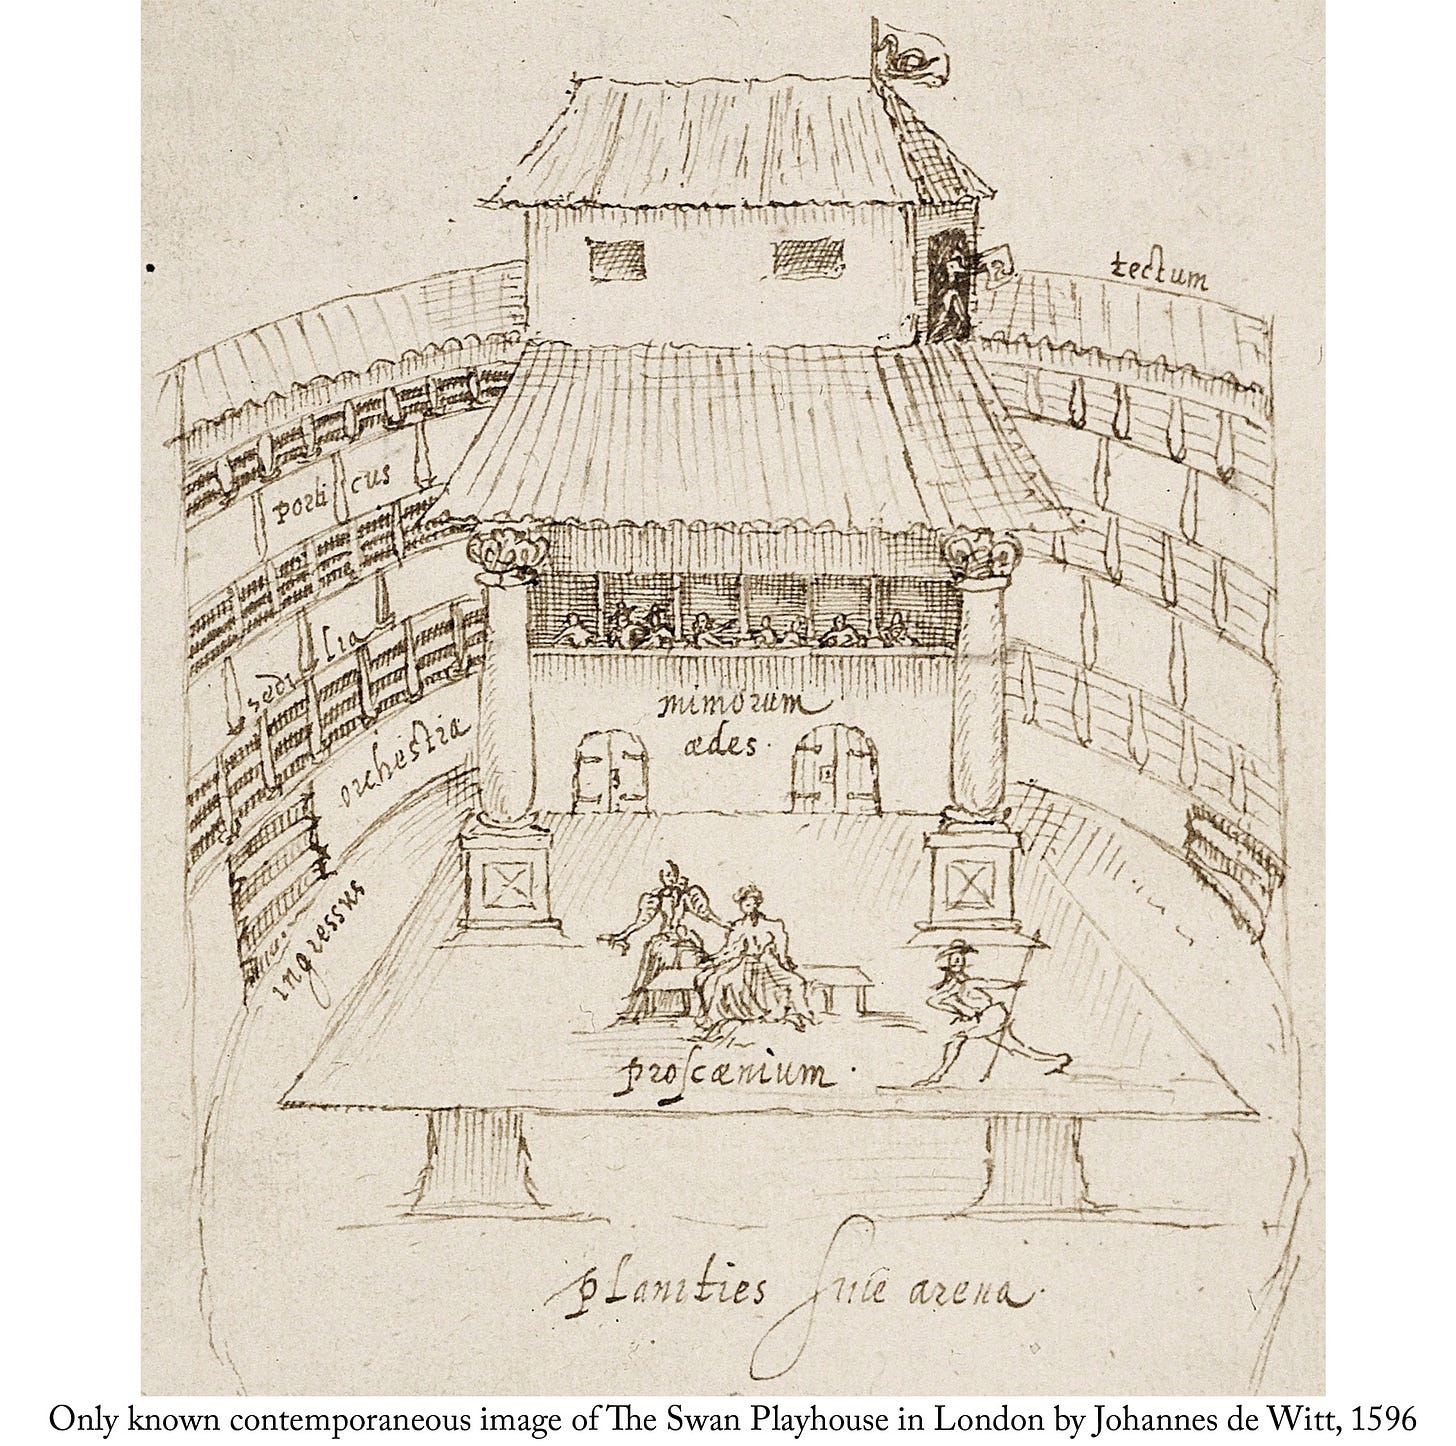 tectum
porticus
sedilia
orchestra
mimorum
ædes.
ingressus
proſcænium.
planities ſiue arena.
Only known contemporaneous image of The Swan Playhouse in London by Johannes de Witt, 1596